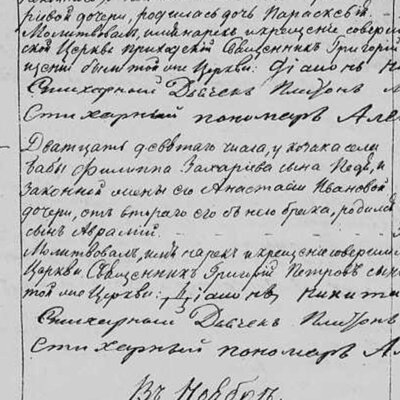 рьевой дочери, родилась дочь Параскевiя
Молитвовалъ, имя нарекъ и крещенiе совершилъ
ской Церкви приходскiй Священникъ Григорiй
щенiи былъ той же Церкви: Дiаконъ
Стихарный Дьячекъ Платонъ
Стихарный пономарь Але
Двадцать девятаго числа, у козака сели
бабы Филиппа Захарiева сына и
законной жены его Анастасiи Ивановой
дочери, отъ втораго его съ нею брака, родился
сынъ Аврамiй.
Молитвовалъ, имя нарекъ и крещенiе соверши
Церкви Священникъ Григорiй Петровъ сынъ
той же Церкви: Дiаконъ Никита
Стихарный Дьячекъ Платонъ
Стихарный пономарь Ал
Въ Ноябрѣ.